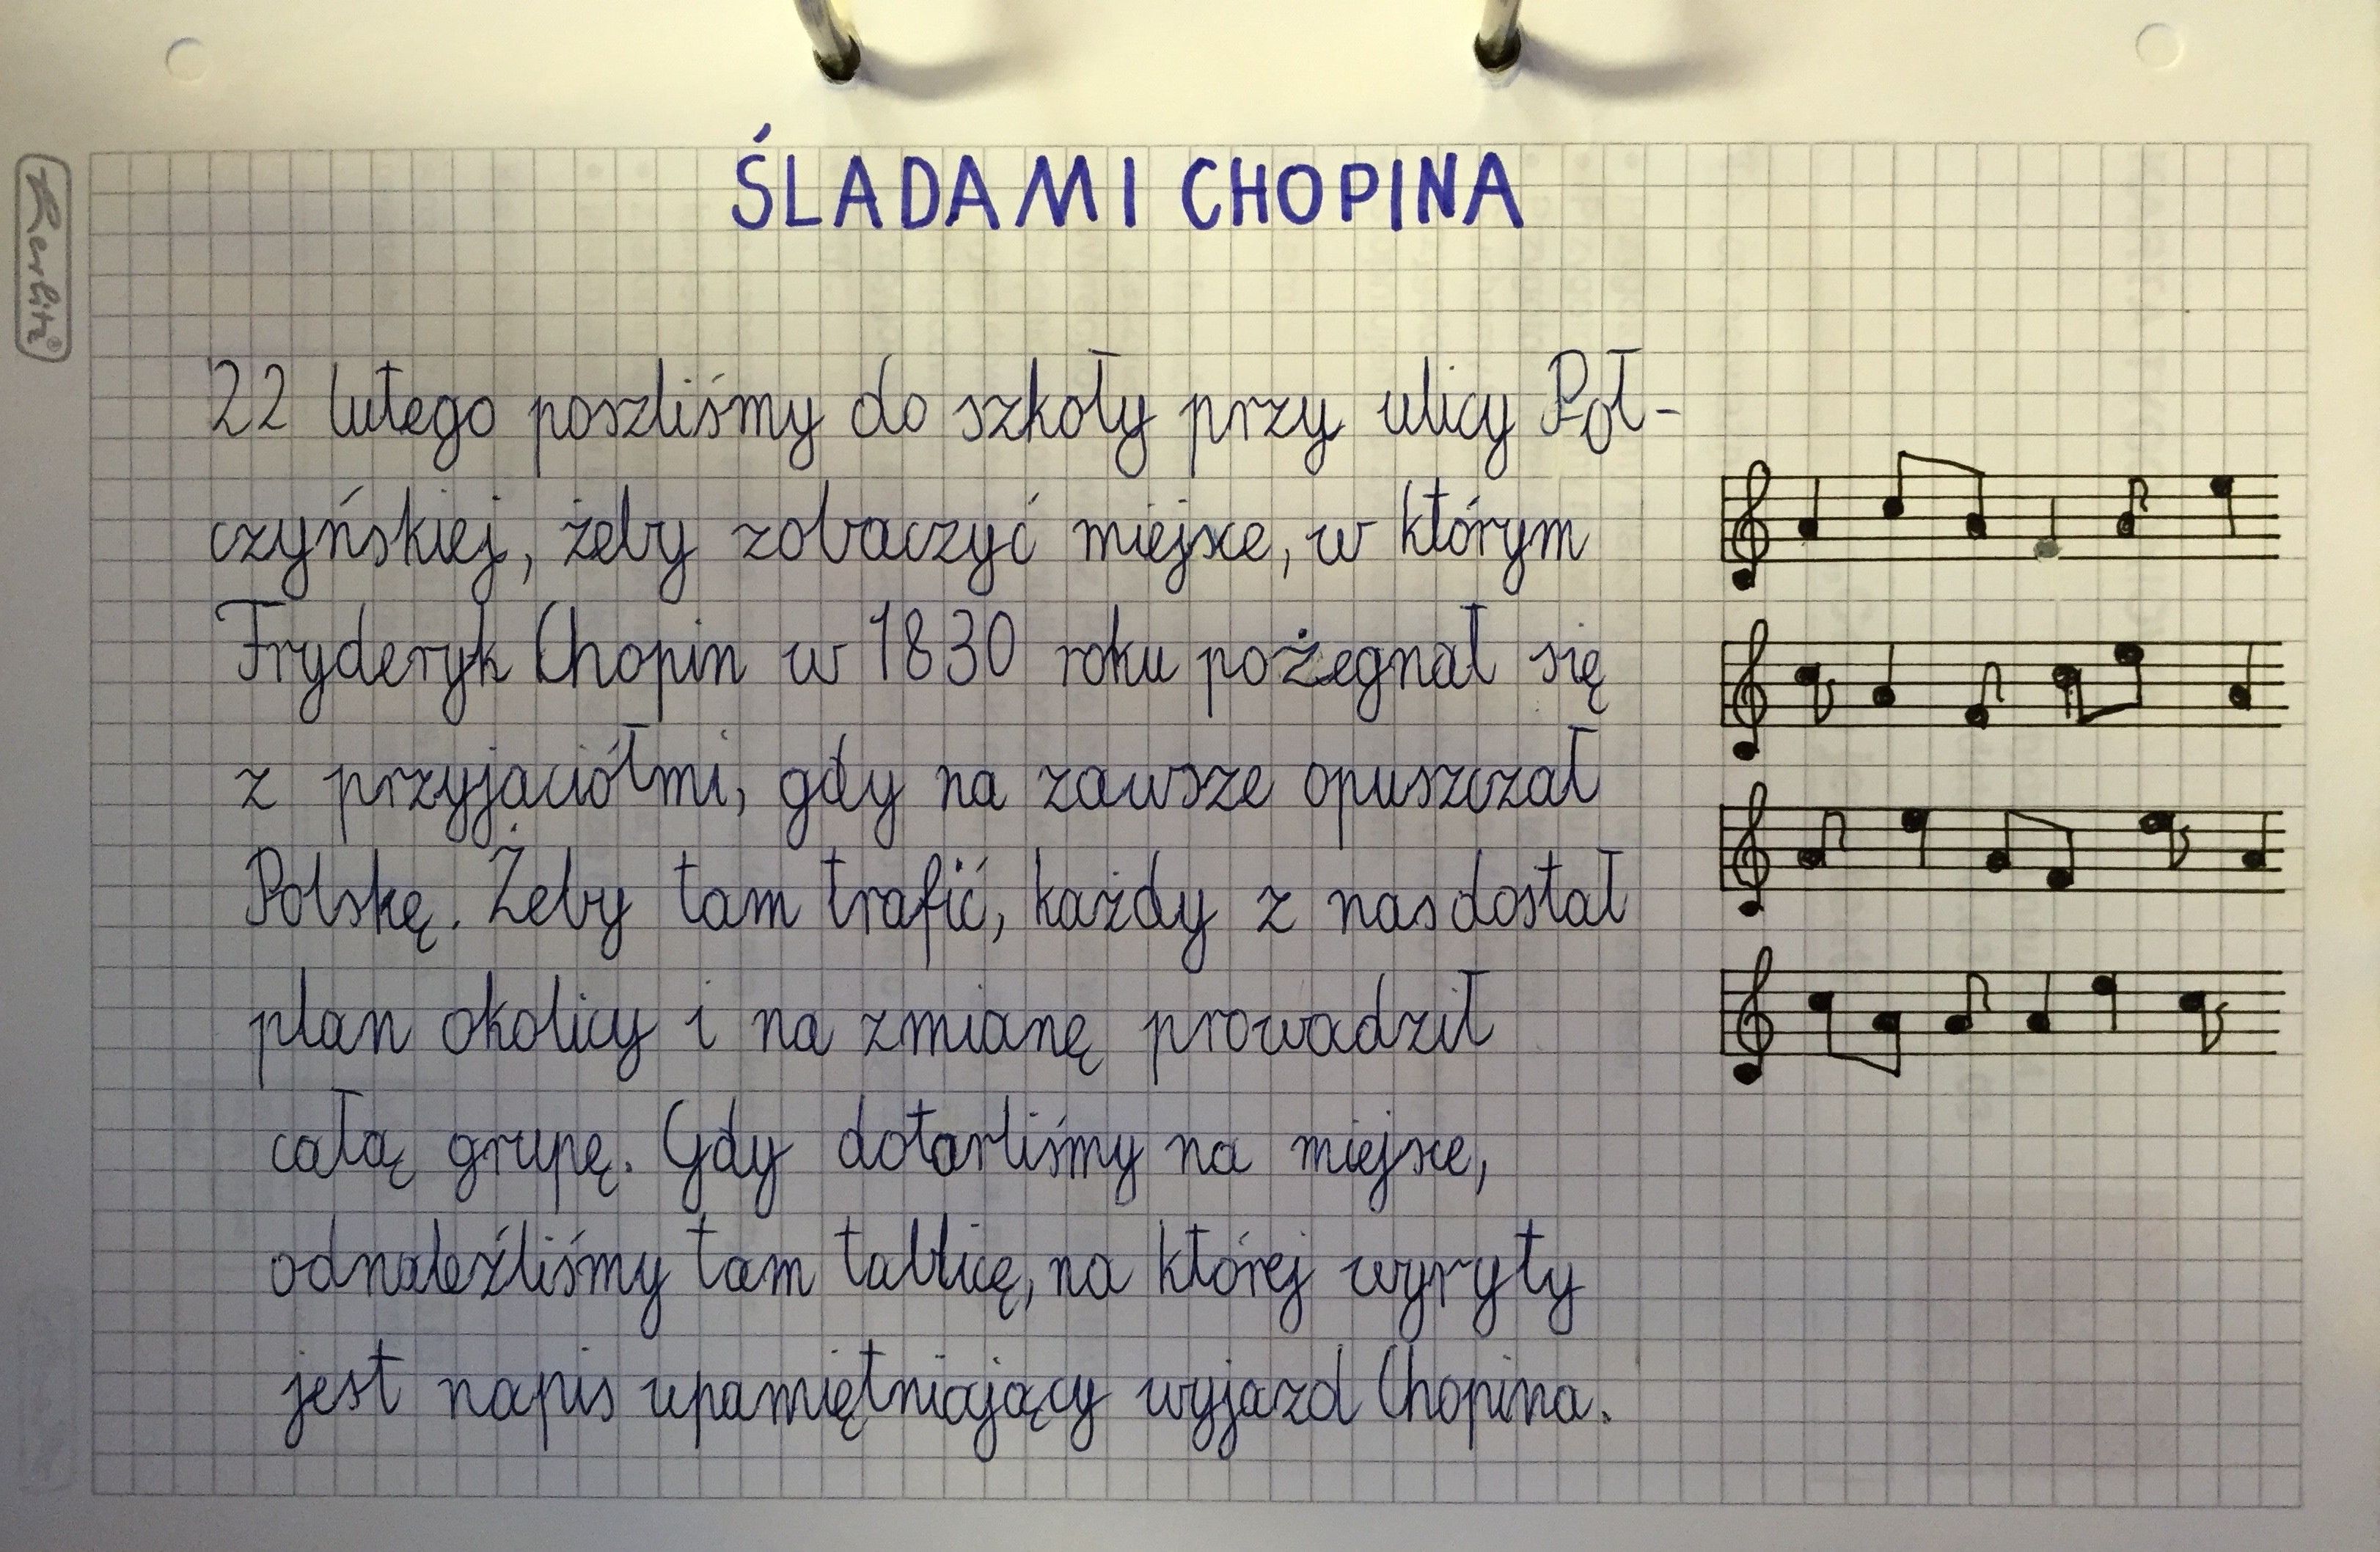 Herlitz®
ŚLADAMI CHOPINA
22 lutego poszliśmy do szkoły przy ulicy Poł-
czyńskiej, żeby zobaczyć miejsce, w którym
Fryderyk Chopin w 1830 roku pożegnał się
z przyjaciółmi, gdy na zawsze opuszczał
Polskę. Żeby tam trafić, każdy z nas dostał
plan okolicy i na zmianę prowadził
całą grupę. Gdy dotarliśmy na miejsce,
odnaleźliśmy tam tablicę, na której wyryty
jest napis upamiętniający wyjazd Chopina.